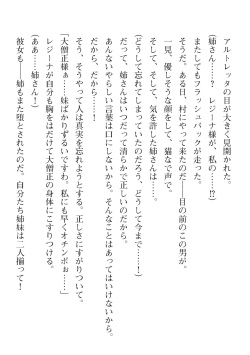 アルトレッタの目が大きく見開かれた。
(姉さん……？　レジーナ様が、私の……!?)
またしてもフラッシュバックが走った。
そうだ。ある日、村にやって来たのだ――目の前のこの男が。
一見、優しそうな顔をして、猫なで声で。
そして、そして、気を許した姉さんは……。
(どうして忘れてしまっていたのだろう、どうして今まで……！)
だって、姉さんはいつだって清らかで正しいのだから。
あんないやらしい言葉は口にしないから。あんなことはあってはいけないから。
だから、だから……！
そう、そうやって人は真実を忘れようとする。正しさにすがりついて。
「大僧正様ぁ……妹ばかりずるいですわ、私にも早くオチンポぉ……」
レジーナが自分も胸をはだけて大僧正の身体にこすりつける。
(ああ……姉さん！)
彼女も――姉もまた堕とされたのだ。自分たち姉妹は二人揃って！